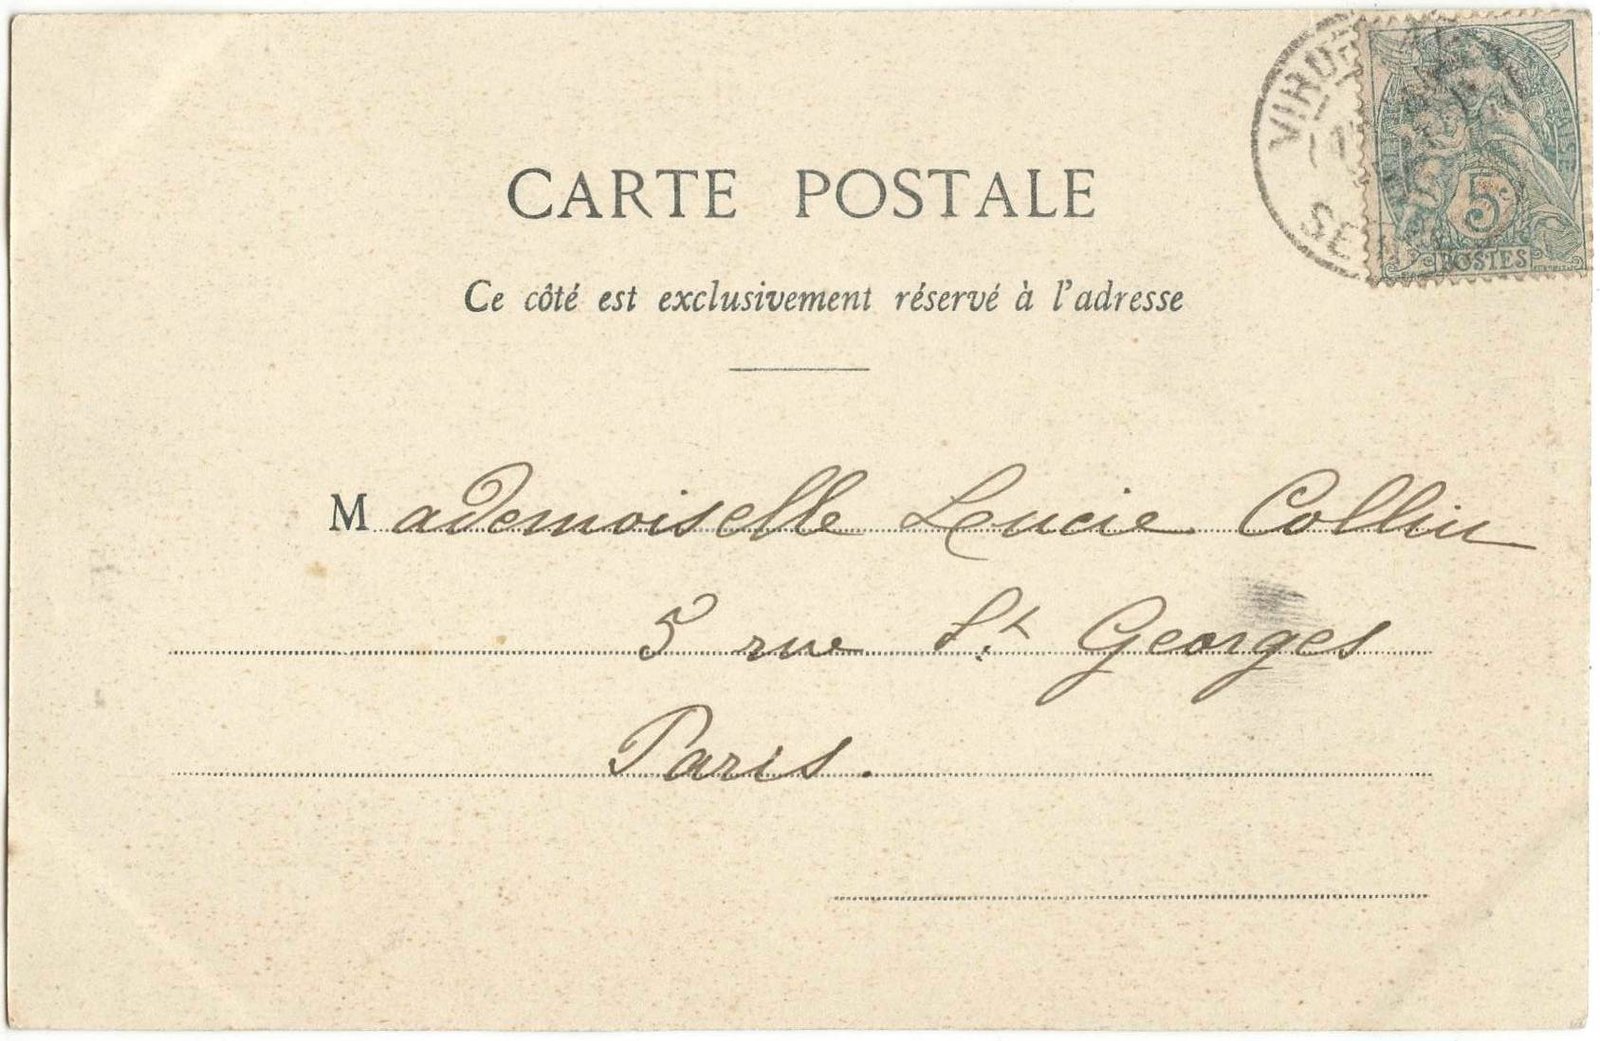 CARTE POSTALE
Ce côté est exclusivement réservé à l'adresse
Mademoiselle Lucie Collin
5 rue St Georges
Paris.
5c
POSTES